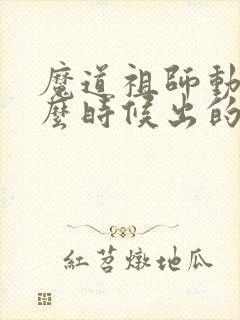 魔道祖師動
麼時候出的
紅苕燉地瓜